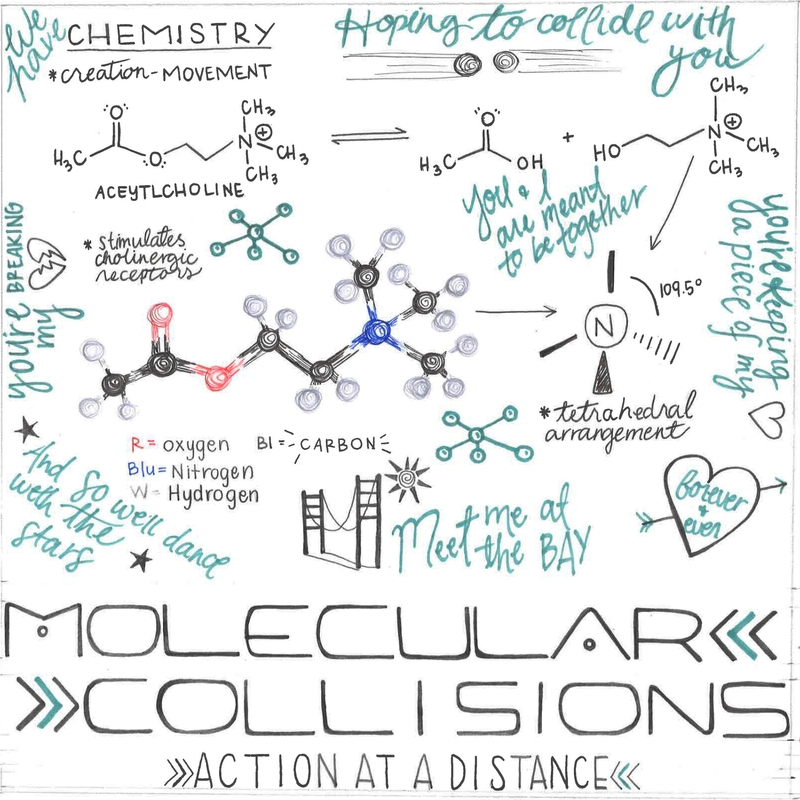 We have
CHEMISTRY
*creation-MOVEMENT
Hoping to collide with
you
H₃C
O
O
N
⊕
CH₃
CH₃
CH₃
ACEYTLCHOLINE
H₃C
O
OH
+
HO
N
⊕
CH₃
CH₃
CH₃
* stimulates
cholinergic
receptors
You & I
are meant
to be together
you're BREAKING
my
you're keeping
a piece of my
N
109.5°
*tetrahedral
arrangement
R= oxygen
Blu= Nitrogen
W= Hydrogen
Bl= CARBON
And so we'll dance
with the
stars
Meet me at
the BAY
forever
+
ever
MOLECULAR
COLLISIONS
ACTION AT A DISTANCE